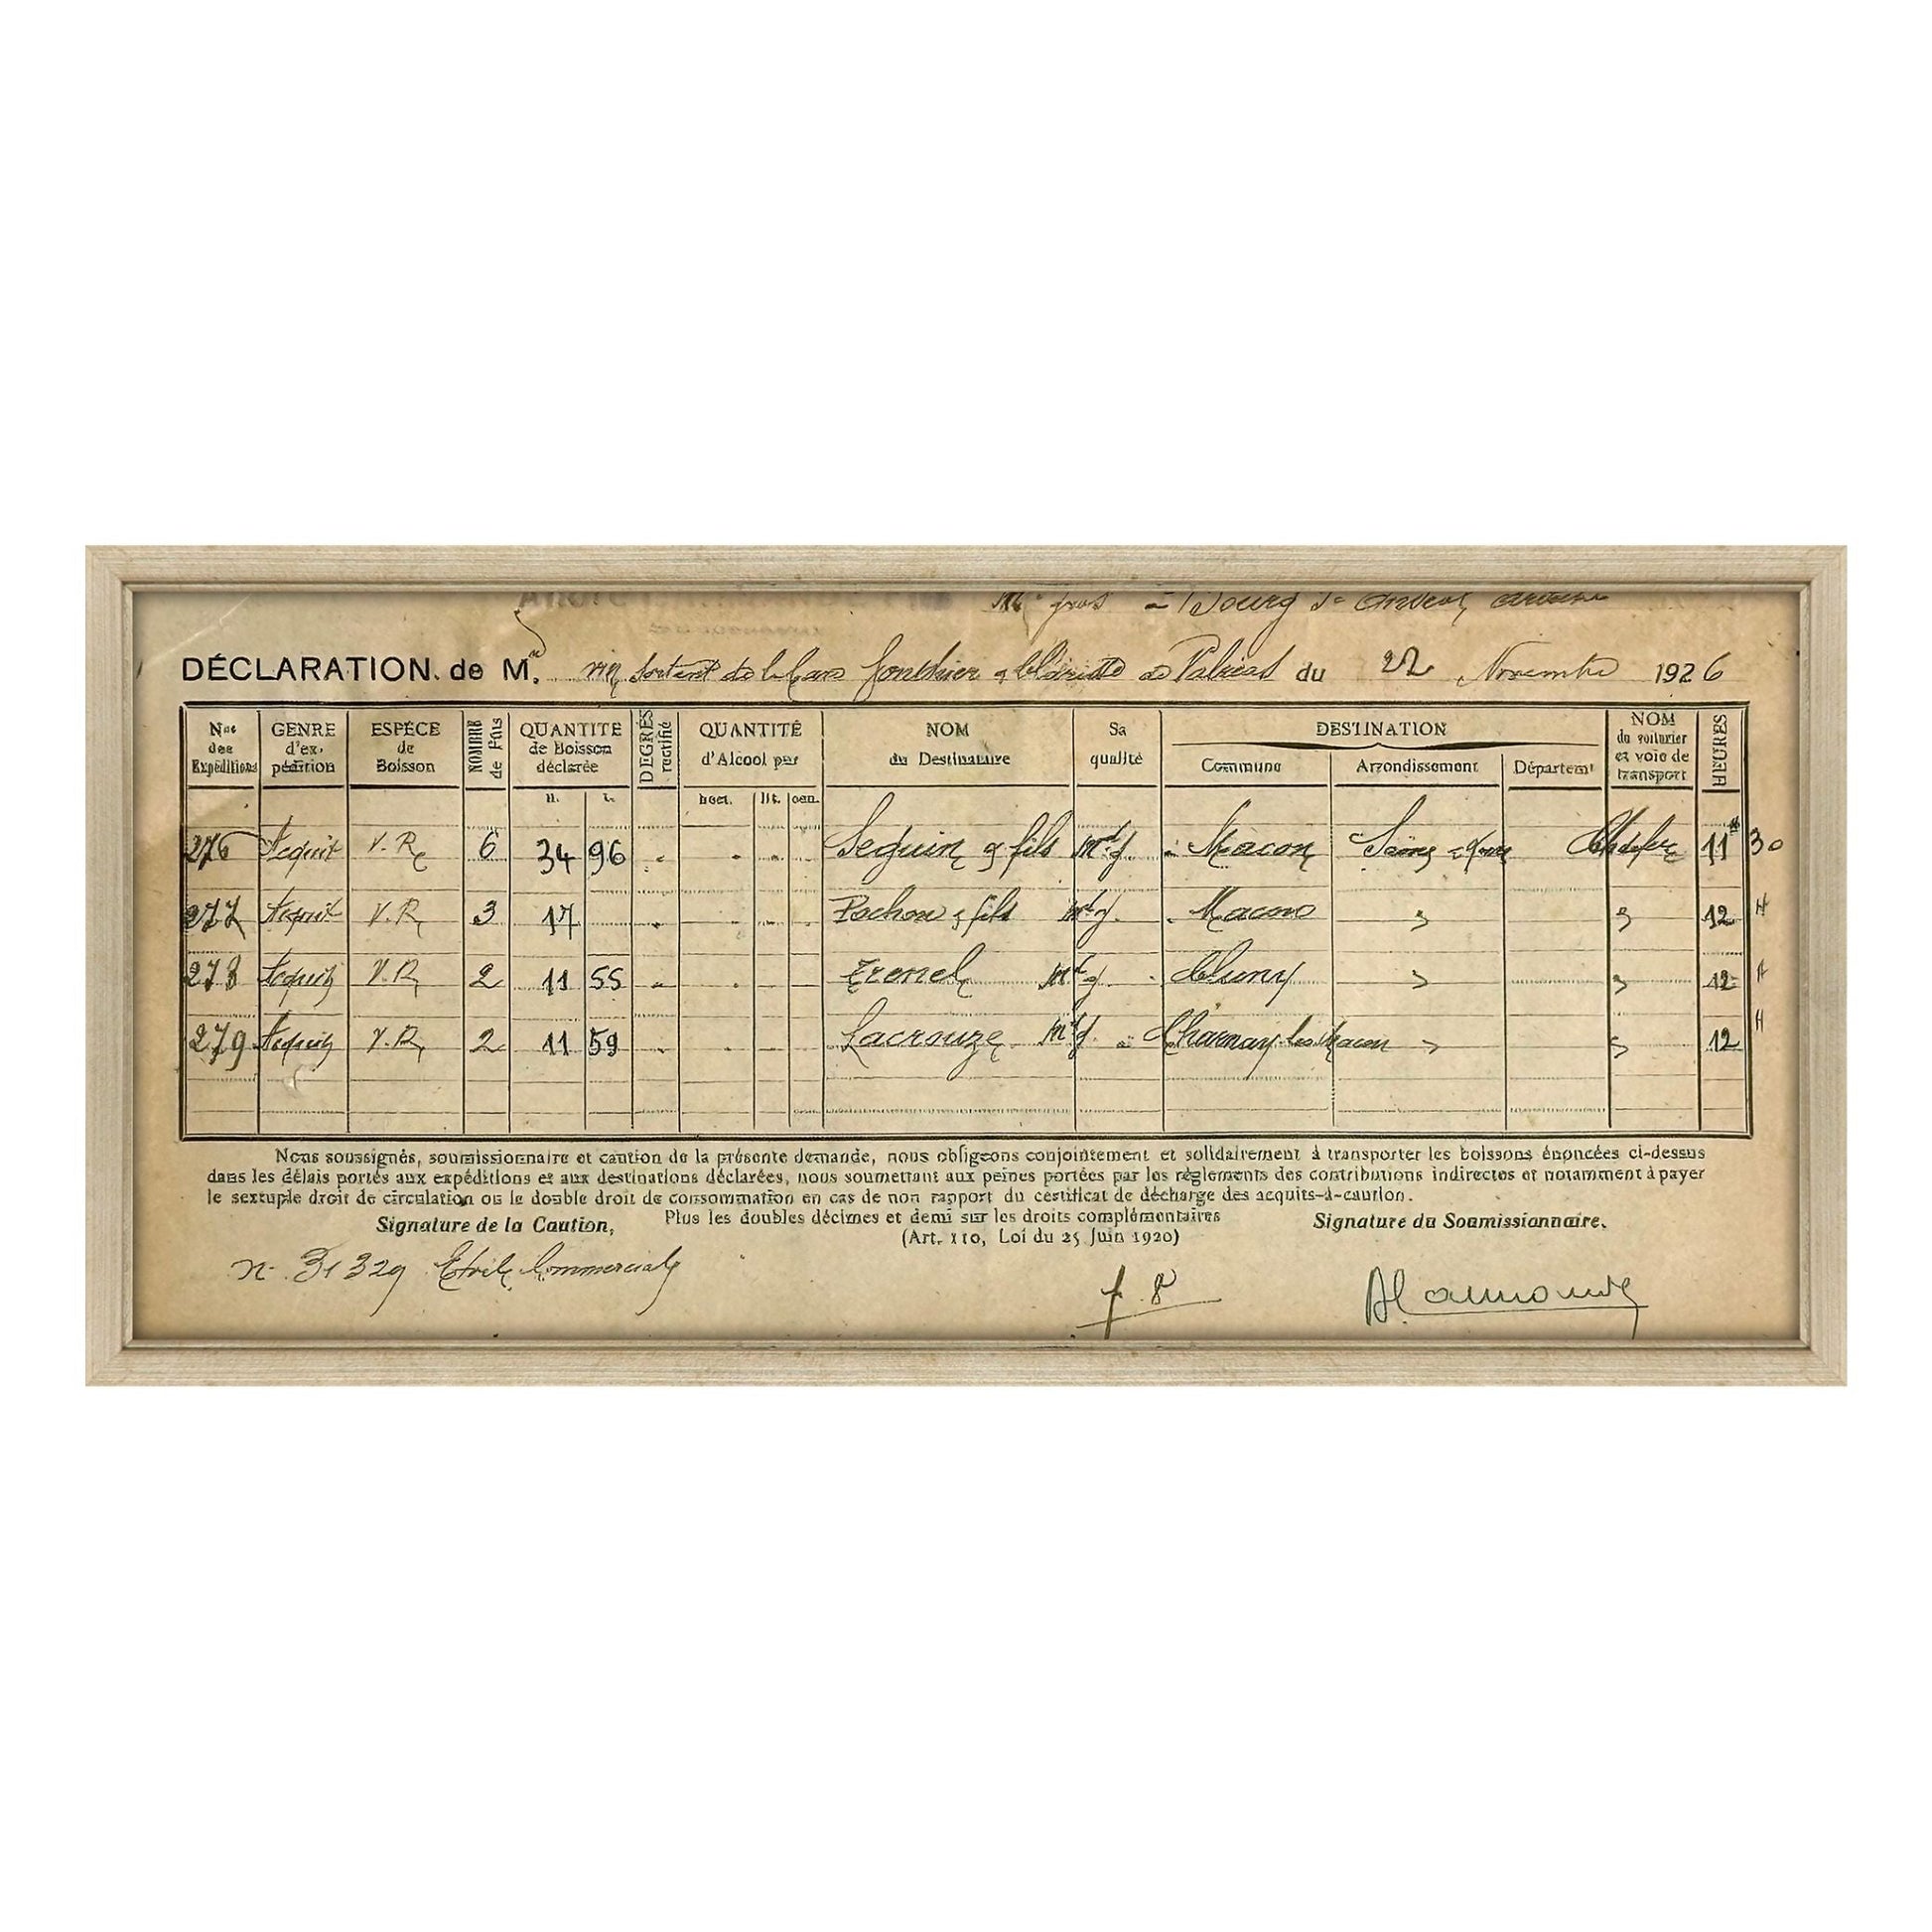 gros à Bourg St Andéol
DÉCLARATION. de M. vin sortant de du 22 Novembre 1926
Nos des Expéditions GENRE d'ex- pédition ESPÈCE de Boisson NOMBRE de Fûts QUANTITÉ de Boisson déclarée DEGRÉS rectifié QUANTITÉ d'Alcool par NOM du Destinataire Sa qualité DESTINATION Commune Arrondissement Départemt NOM du voiturier et voie de transport HEURES
H. L. hect. lit. cen.
276 Acquit V. R 6 34 96 Seguin & fils Md g. Macon Saône & Loire Ch de fer 11 H 30
277 Acquit V. R 3 17 Pochon & fils Md g. Macon " " 12 H
278 Acquit V. R 2 11 55 Trenel Md g. Cluny " " 12 H
279 Acquit V. R 2 11 59 Lacrouze Md g. à Charnay les Macon " " 12 H
Nous soussignés, soumissionnaire et caution de la présente demande, nous obligeons conjointement et solidairement à transporter les boissons énoncées ci-dessus
dans les délais portés aux expéditions et aux destinations déclarées, nous soumettant aux peines portées par les règlements des contributions indirectes et notamment à payer
le sextuple droit de circulation ou le double droit de consommation en cas de non rapport du certificat de décharge des acquits-à-caution.
Plus les doubles décimes et demi sur les droits complémentaires
Signature de la Caution, Signature du Soumissionnaire.
(Art. 110, Loi du 25 Juin 1920)
n° 31329 Commerciale